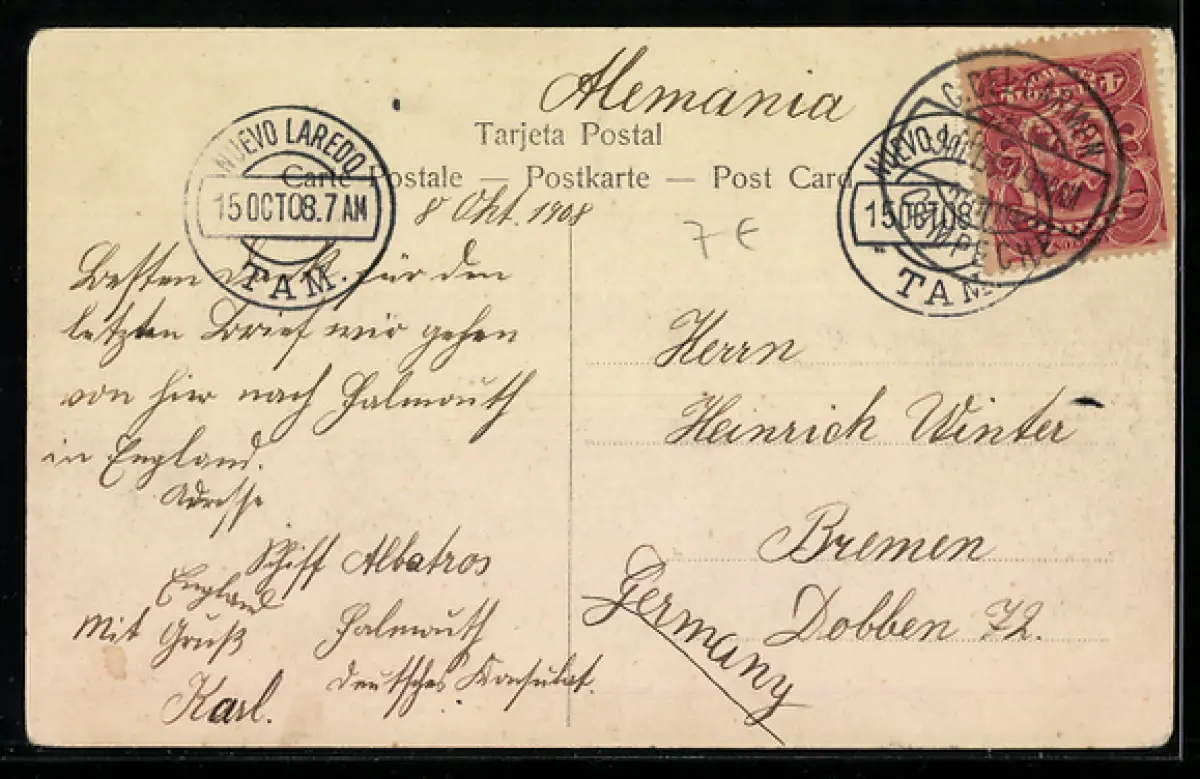 Alemania
Tarjeta Postal
Carte Postale — Postkarte — Post Card
8 Okt. 1908
7 €
NUEVO LAREDO
15 OCT 08. 7 AM
TAM.
Besten Dank für den
letzten Brief wir gehen
von hier nach Falmouth
in England.
Adresse
Schiff Albatros
England
Falmouth
deutsches Konsulat.
Mit Gruß
Karl.
C. DEL CARMEN
CAMPECHE
NUEVO
15 OCT 08
TAM.
Herrn
Heinrich Winter
Bremen
Dobben 72.
Germany